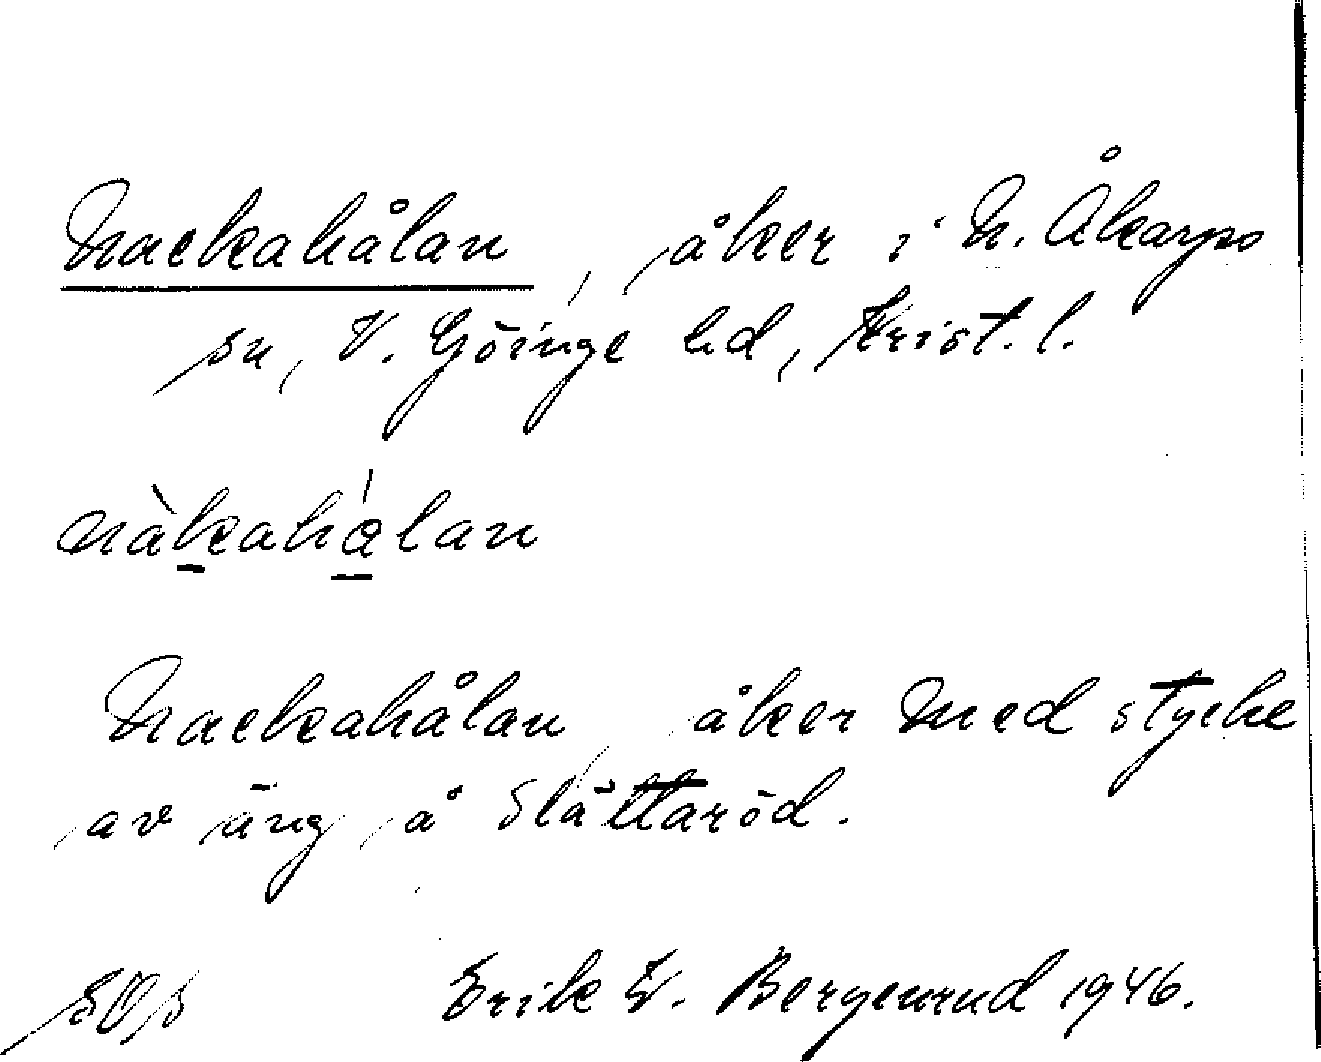 Nackahålan, åker i N. Åkarps
sn, V. Göinge hd, Krist. l.
nàkahálan
Nackahålan, åker med stycke
av äng å Slättaröd.
Erik W. Bergenrud 1946.